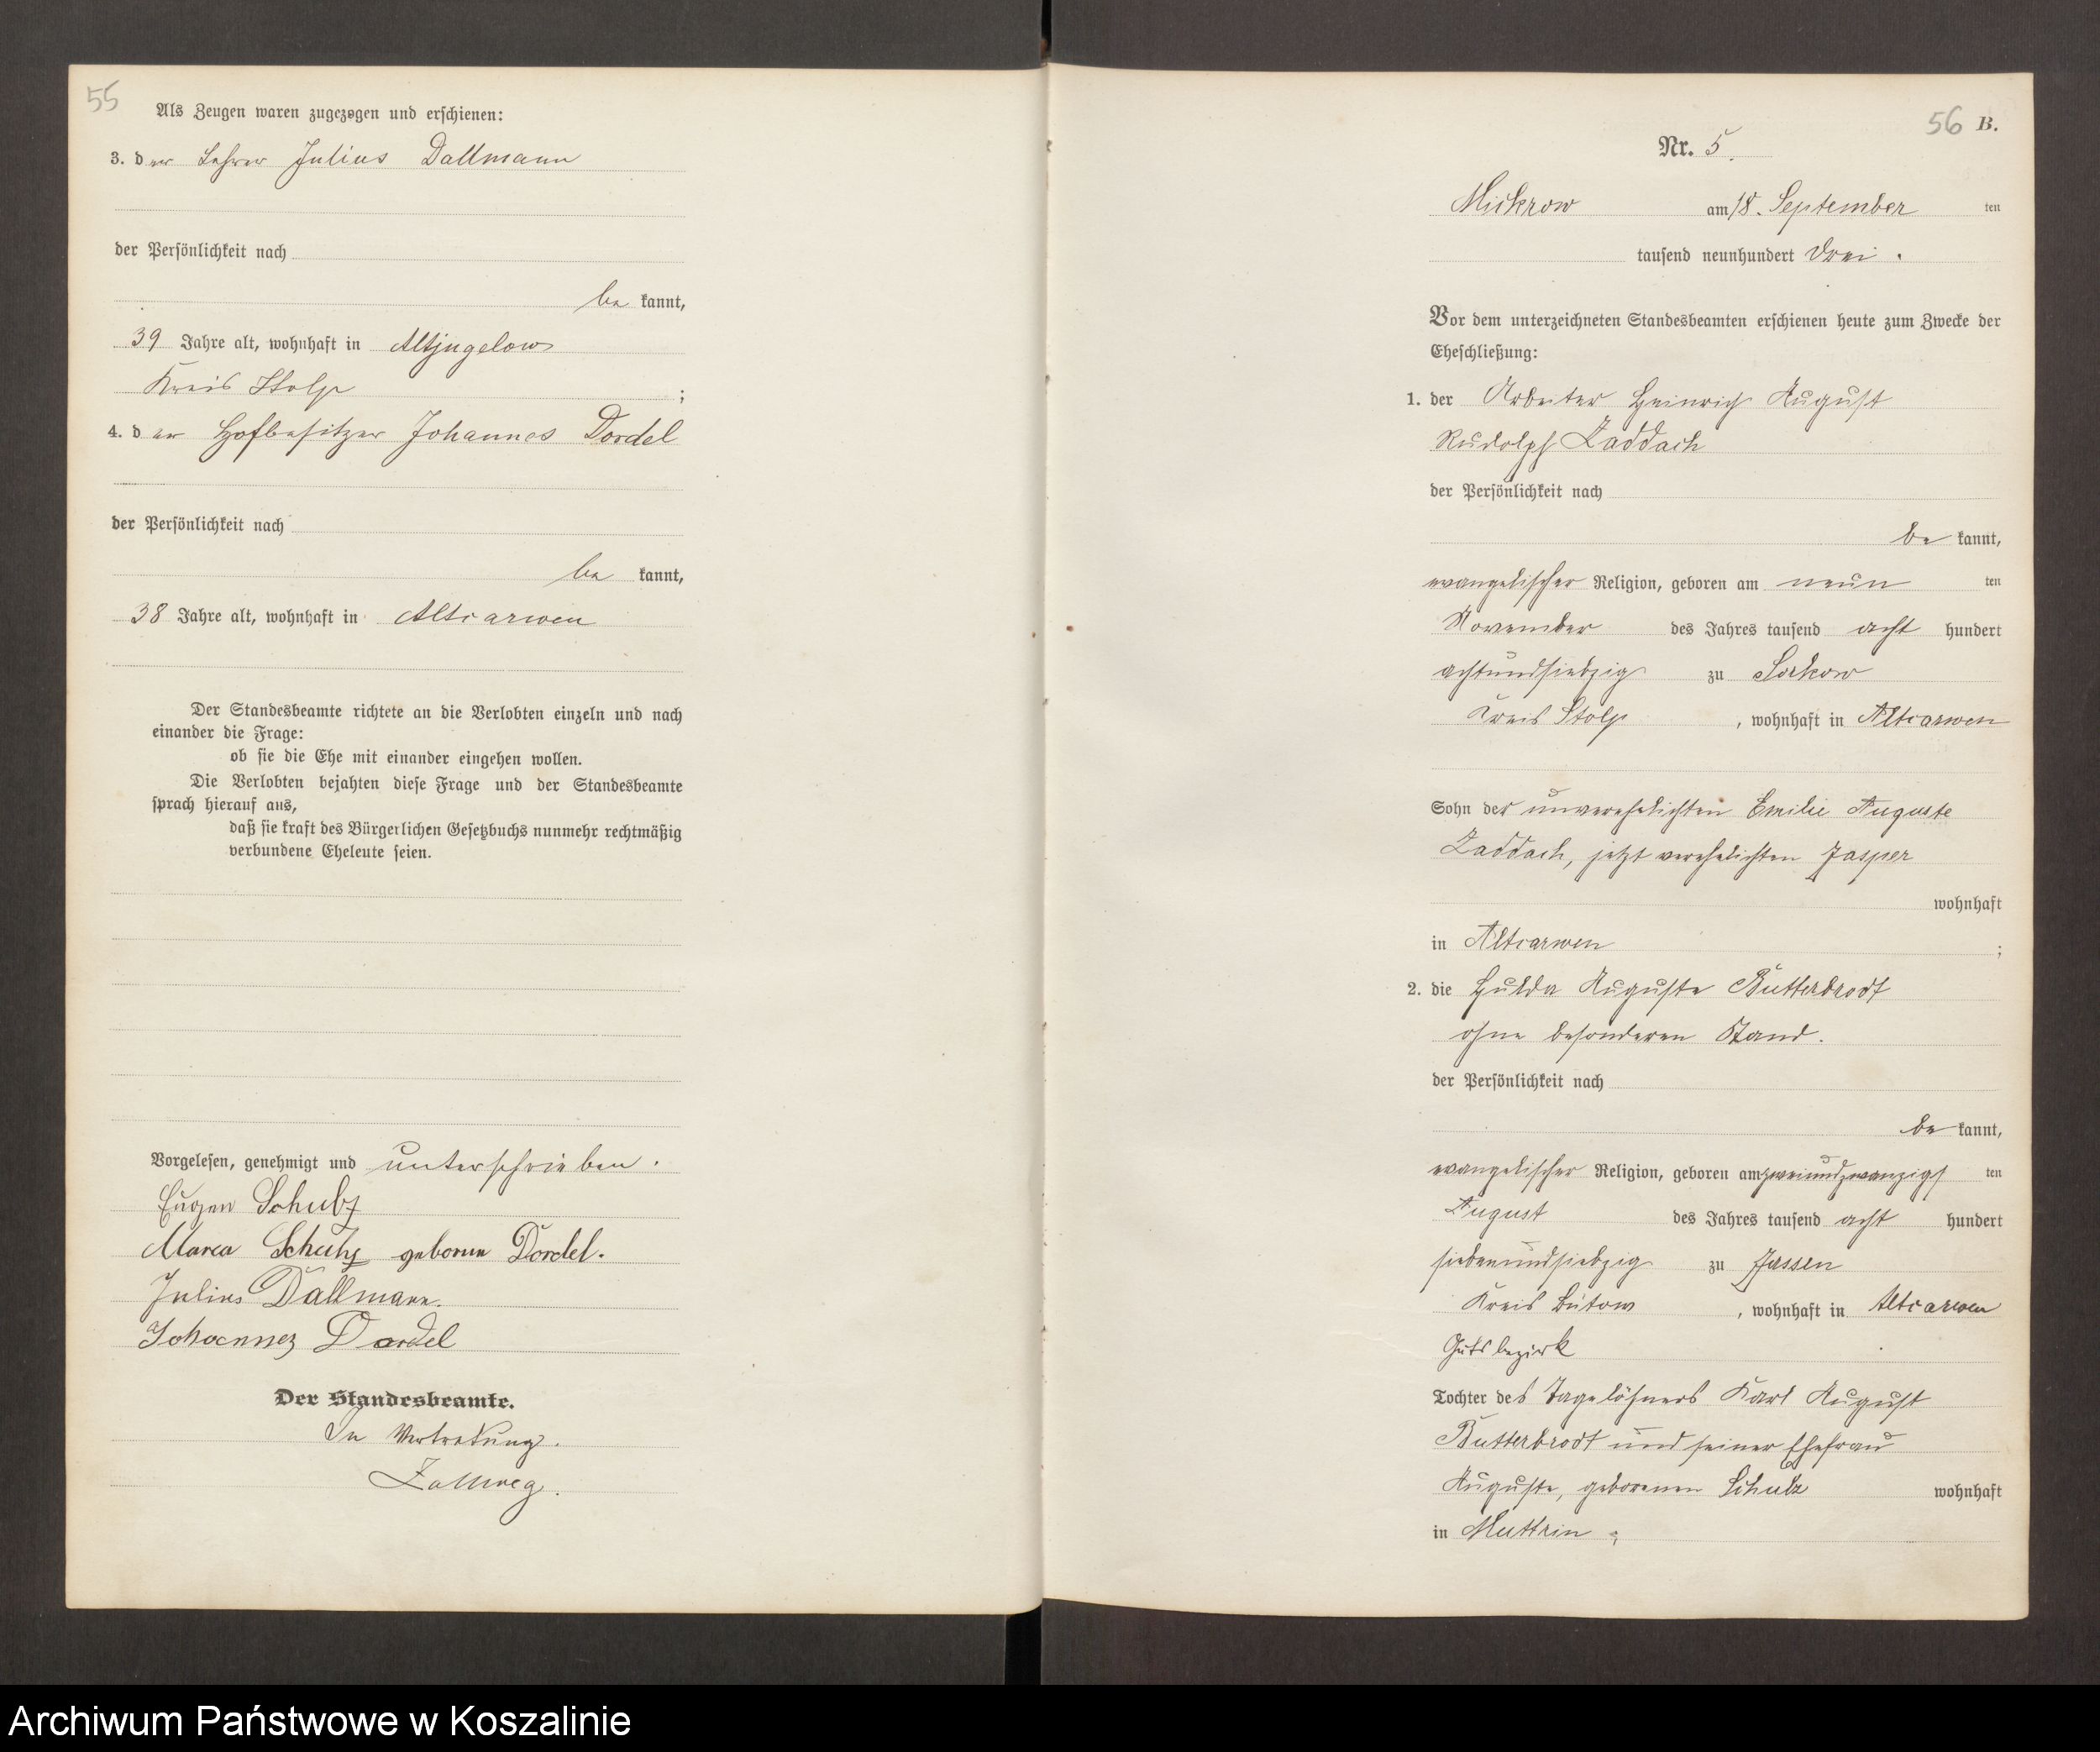 55
Als Zeugen waren zugezogen und erschienen:
3. der Lehrer Julius Dallmann
der Persönlichkeit nach
be kannt,
39 Jahre alt, wohnhaft in Altjugelow
Kreis Stolp ;
4. der Hofbesitzer Johannes Dordel
der Persönlichkeit nach
be kannt,
38 Jahre alt, wohnhaft in Altcarwen
Der Standesbeamte richtete an die Verlobten einzeln und nach
einander die Frage:
ob sie die Ehe mit einander eingehen wollen.
Die Verlobten bejahten diese Frage und der Standesbeamte
sprach hierauf aus,
daß sie kraft des Bürgerlichen Gesetzbuchs nunmehr rechtmäßig
verbundene Eheleute seien.
Vorgelesen, genehmigt und unterschrieben.
Eugen Schulz
Maria Schulz geborene Dordel.
Julius Dallmann.
Johannes Dordel
Der Standesbeamte.
In Vertretung.
56 B.
Nr. 5.
Mickrow am 18. September ten
tausend neunhundert drei.
Vor dem unterzeichneten Standesbeamten erschienen heute zum Zwecke der
Eheschließung:
1. der Arbeiter Heinrich August
Rudolph Zaddach
der Persönlichkeit nach
be kannt,
evangelischer Religion, geboren am neun ten
November des Jahres tausend acht hundert
achtundsiebzig zu Lorkow
Kreis Stolp , wohnhaft in Altcarwen
Sohn der unverehelichten Emilie Auguste
Zaddach, jetzt verehelichten Jasper
wohnhaft
in Altcarwen ;
2. die Hulda Auguste Butterbrodt
ohne besonderen Stand.
der Persönlichkeit nach
be kannt,
evangelischer Religion, geboren am zweiundzwanzigs ten
August des Jahres tausend acht hundert
siebenundsiebzig zu Jassen
Kreis Bütow , wohnhaft in Altcarwen
Gutsbezirk
Tochter des Tagelöhners Karl August
Butterbrodt und seiner Ehefrau
Auguste, geborenen Schulz wohnhaft
in Muttrin ;
Archiwum Państwowe w Koszalinie